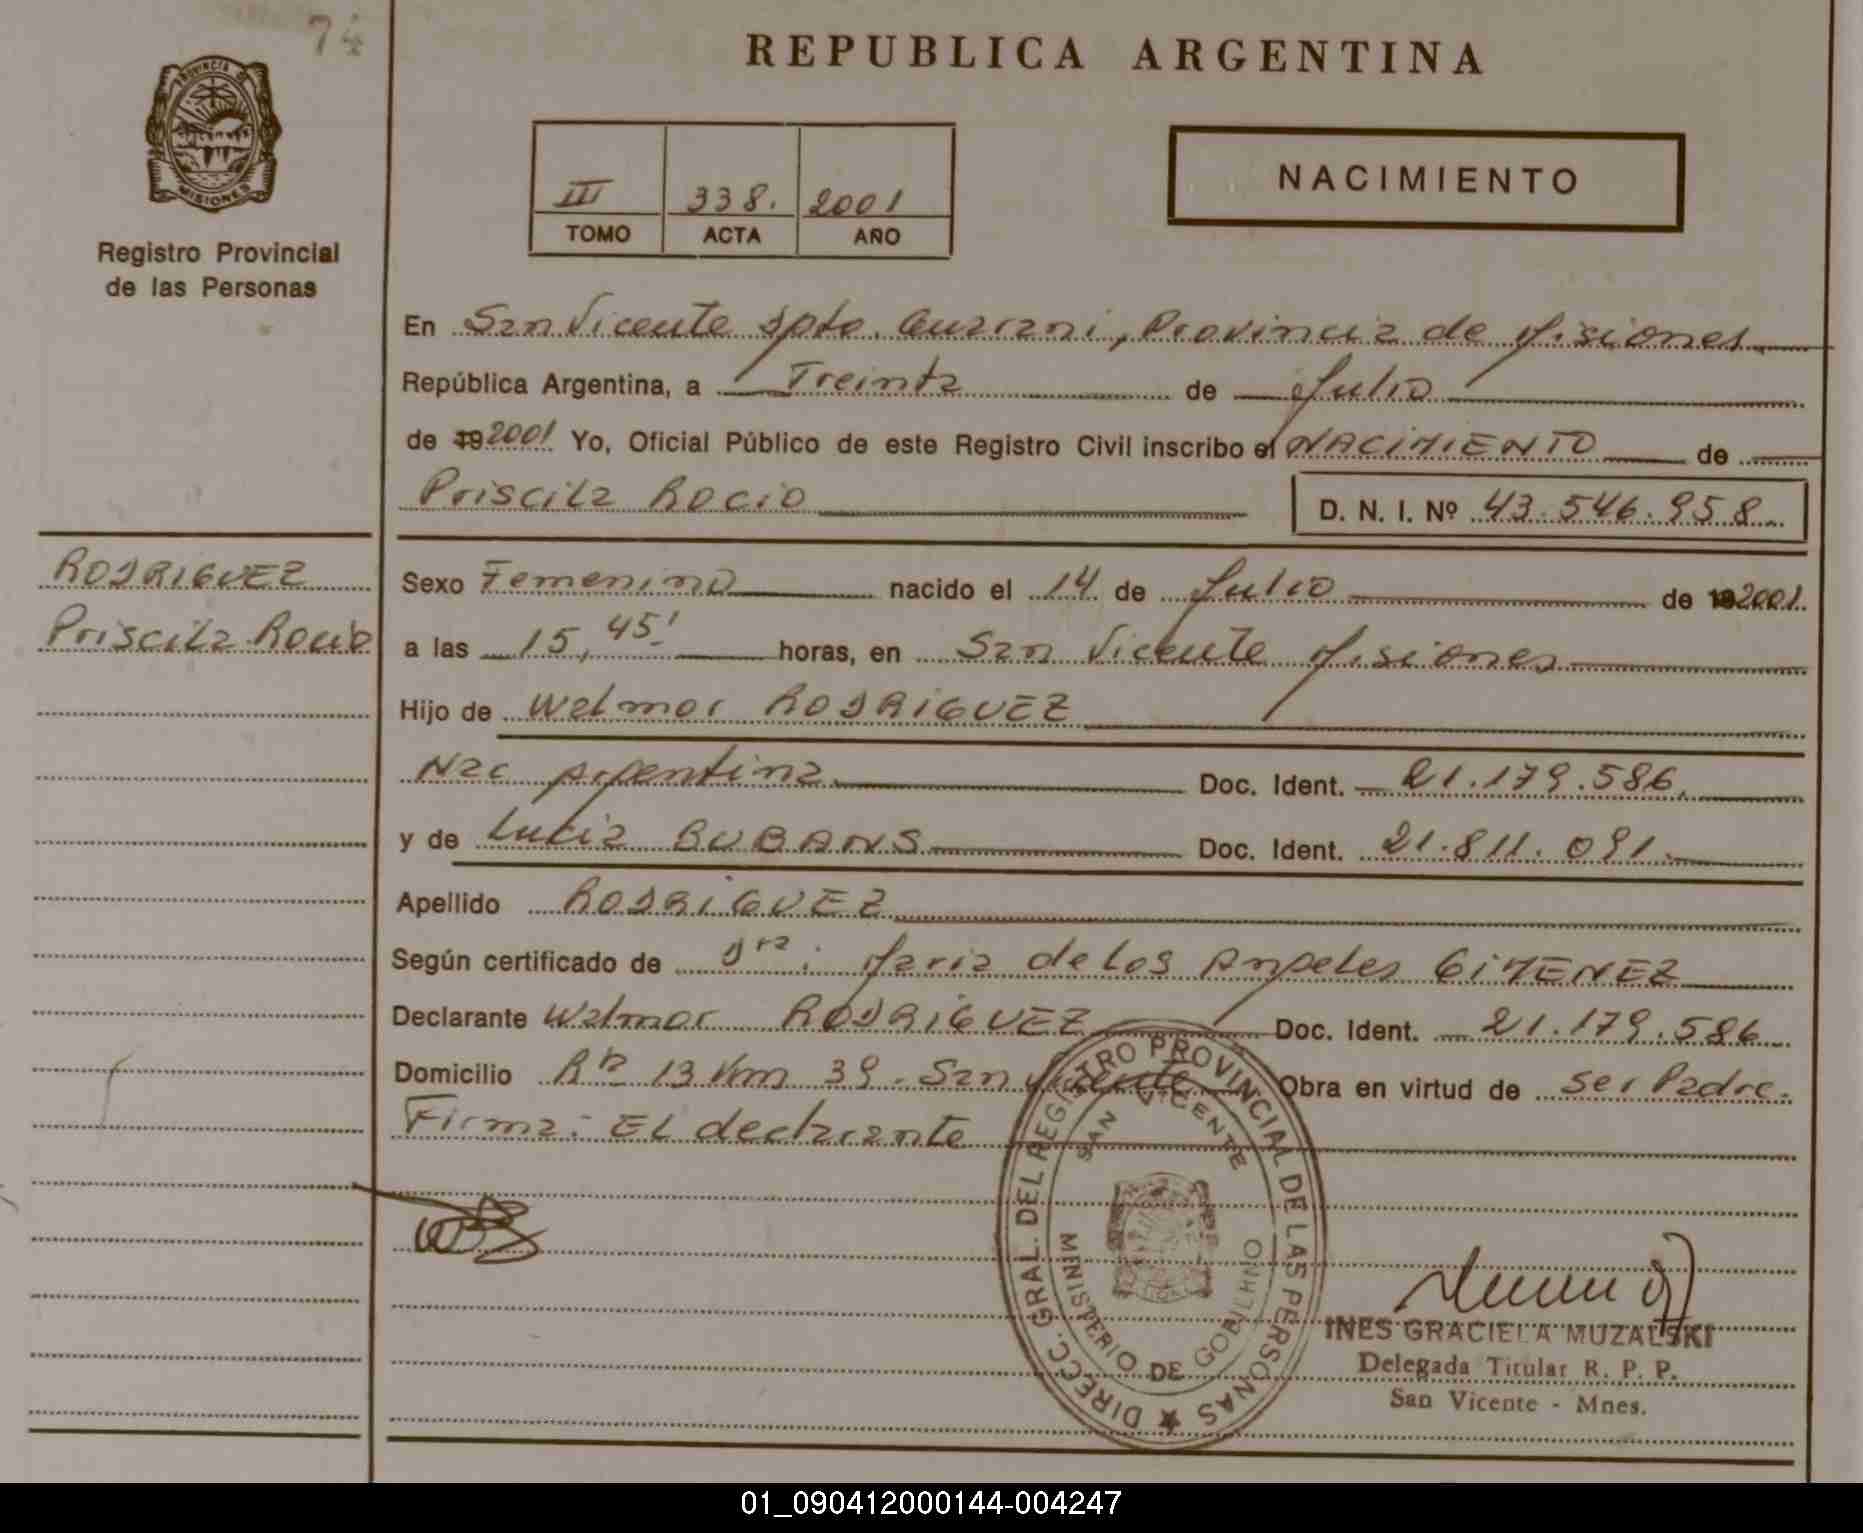 74
PROVINCIA DE
MISIONES
Registro Provincial
de las Personas
REPUBLICA ARGENTINA
III 338. 2001
TOMO ACTA AÑO
NACIMIENTO
En San Vicente Dpto. Guarani, Provincia de Misiones
República Argentina, a Treinta de Julio
de 19 2001 Yo, Oficial Público de este Registro Civil inscribo el NACIMIENTO de
Priscila Rocio D. N. I. Nº 43.546.958
RODRIGUEZ
Priscila Rocio
Sexo Femenino nacido el 14 de Julio de 19 2001.
a las 15,45' horas, en San Vicente Misiones
Hijo de Walmor RODRIGUEZ
Nac Argentina Doc. Ident. 21.179.586.
y de Lucia BUBANS Doc. Ident. 21.811.091.
Apellido RODRIGUEZ
Según certificado de Dra: Maria de los Angeles GIMENEZ
Declarante Walmor RODRIGUEZ Doc. Ident. 21.179.586
Domicilio Rta 13 Km 39. San Vicente Obra en virtud de ser Padre.
Firma: El declarante
DIRECC. GRAL. DEL REGISTRO PROVINCIAL DE LAS PERSONAS
SAN VICENTE
MENISTERIO DE GOBIERNO
INES GRACIELA MUZALSKI
Delegada Titular R. P. P.
San Vicente - Mnes.
01_090412000144-004247